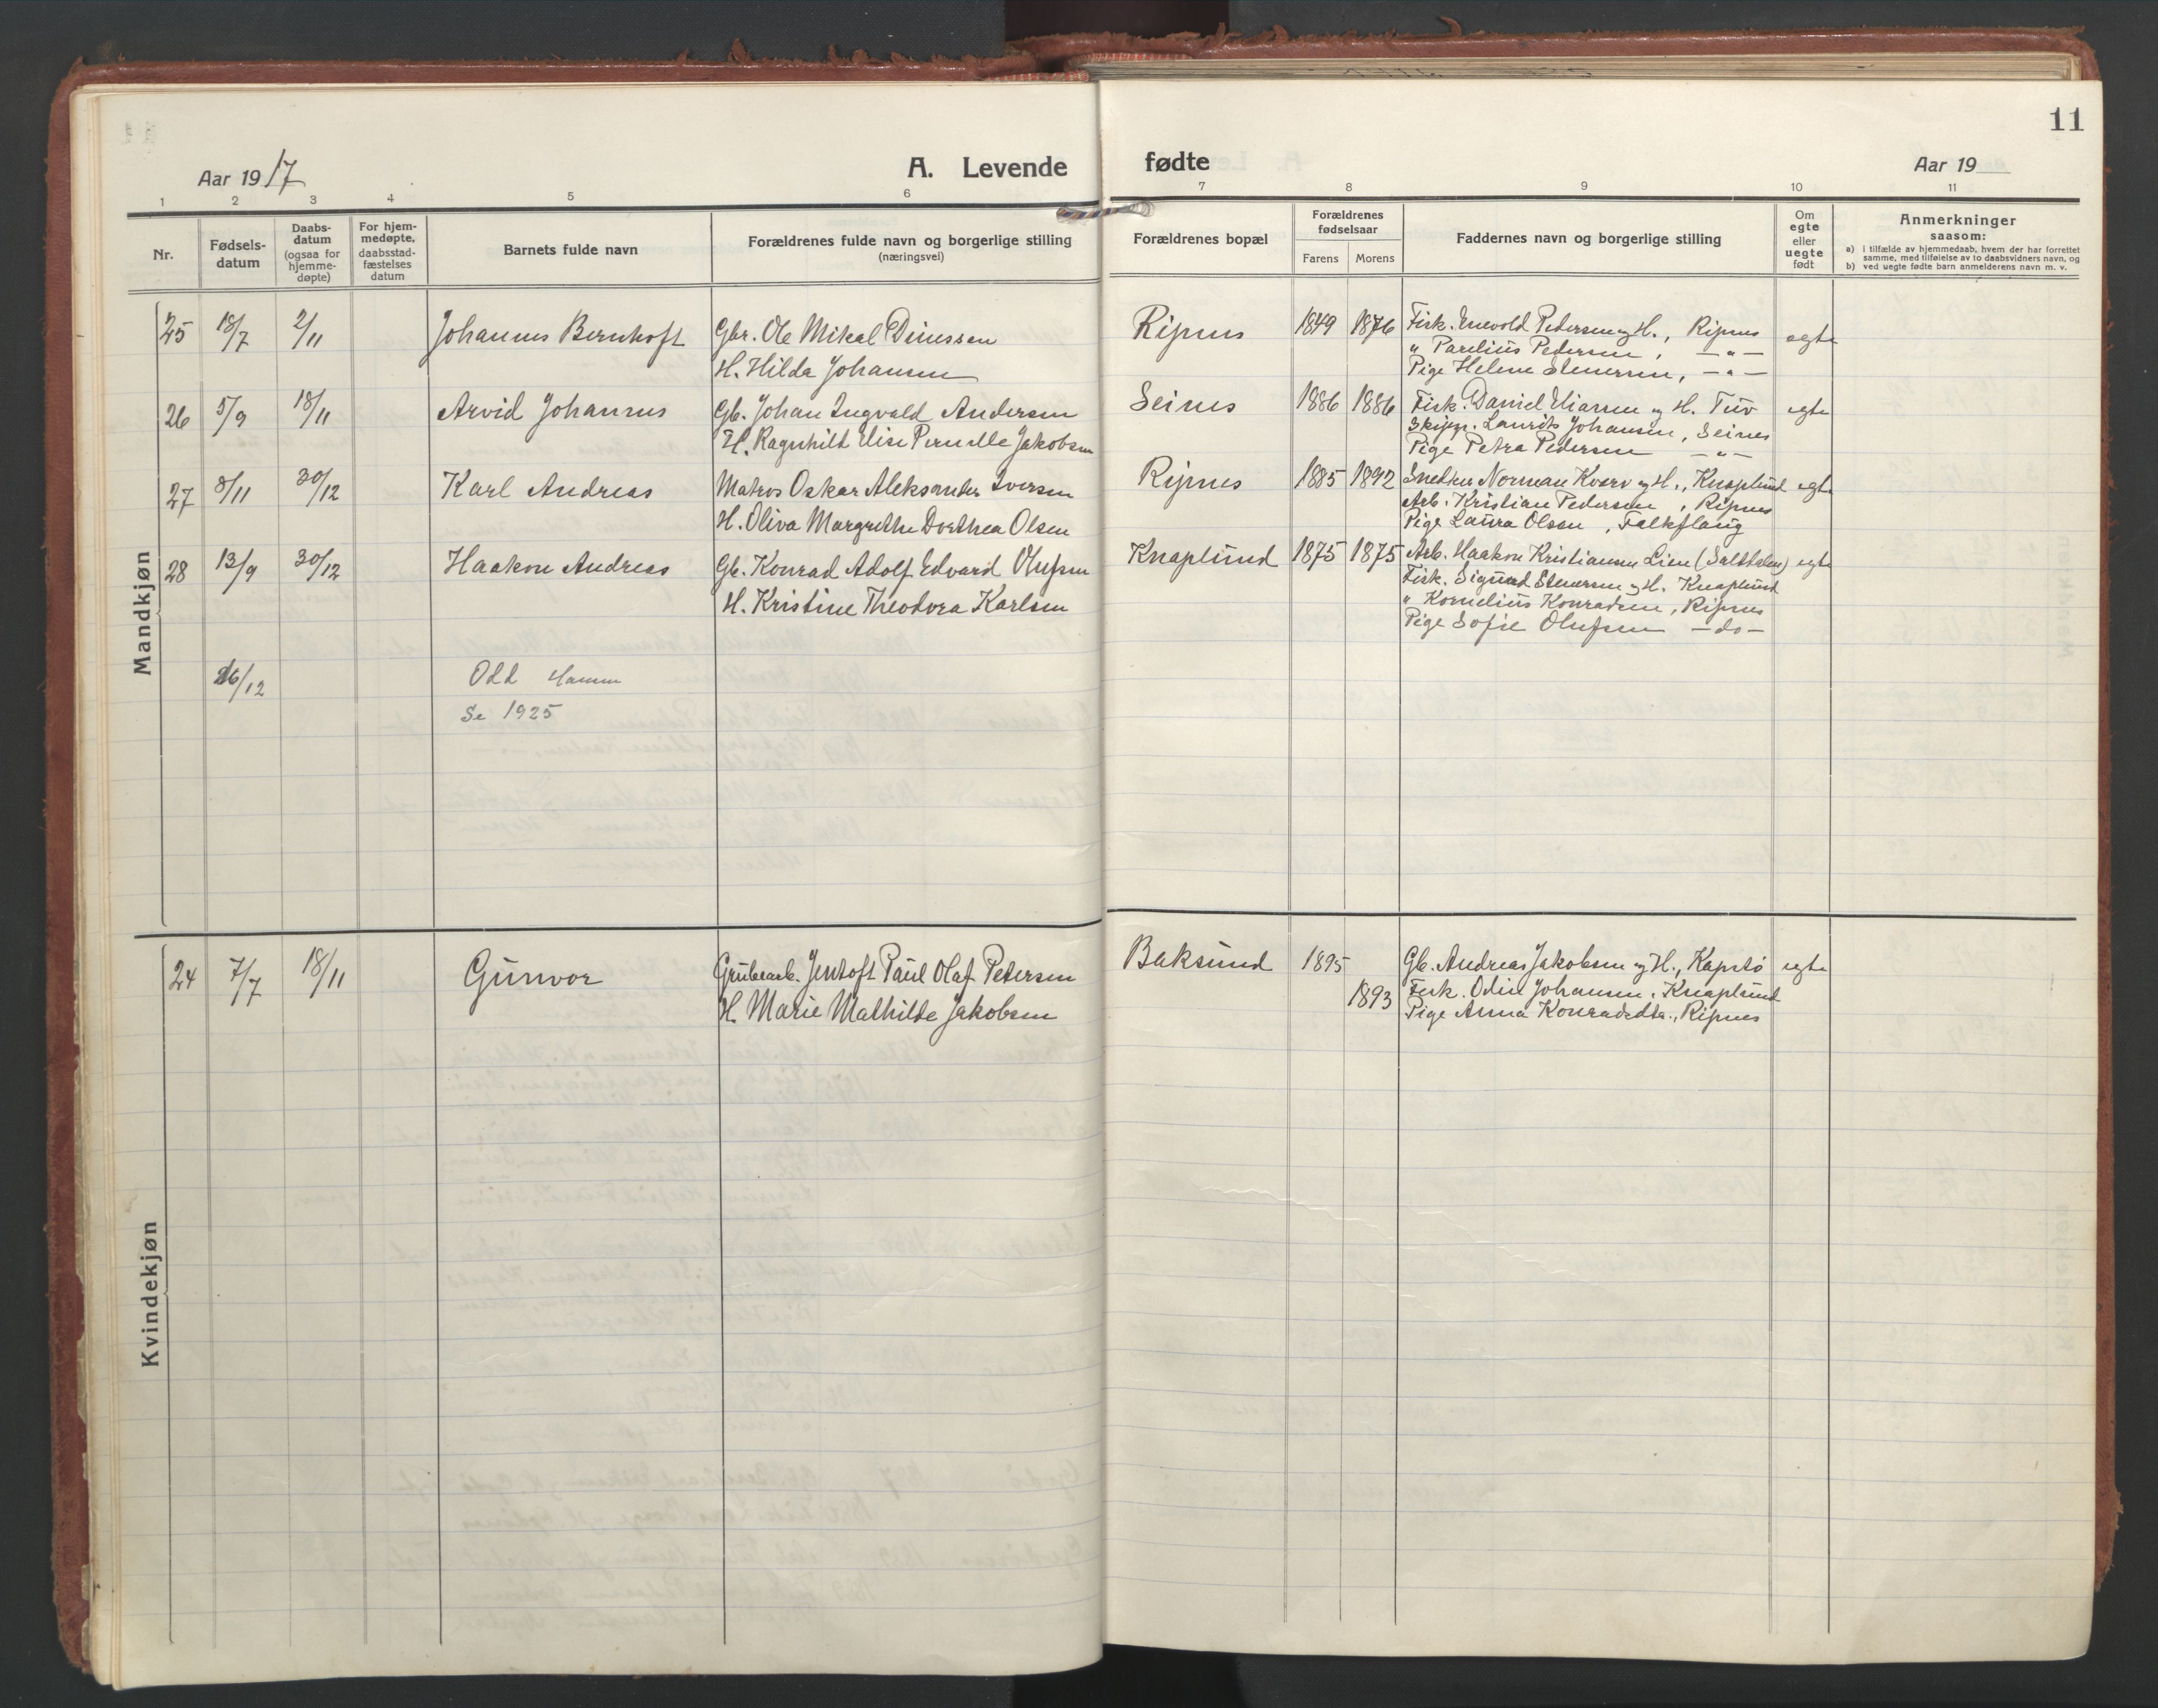 11
Aar 1917
A. Levende
fødte
Aar 19
1 2 3 4 5 6 7 8 9 10 11
Nr.
Fødsels-
datum
Daabs-
datum
(ogsaa for
hjemme-
døpte)
For hjem-
medøpte,
daabsstad-
fæstelses
datum
Barnets fulde navn
Forældrenes fulde navn og borgerlige stilling
(næringsvei)
Forældrenes bopæl
Forældrenes
fødselsaar
Farens Morens
Faddernes navn og borgerlige stilling
Om
egte
eller
uegte
født
Anmerkninger
saasom:
a) i tilfælde av hjemmedaab, hvem der har forrettet
samme, med tilføielse av to daabsvidners navn, og
b) ved uegte fødte barn anmelderens navn m. v.
Mandkjøn
25 18/7 2/11 Johannes Bernhoft Gbr. Ole Mikal Dinessen Ripnes 1849 1876 Fisk. Enevold Pedersen og H., Ripnes egte
H. Hilda Johansen " Parelius Pedersen, — " —
Pige Helene Stenersen, — " —
26 5/9 18/11 Arvid Johannes Gb. Johan Ingvald Andersen Seines 1886 1886 Fisk. Daniel Eliassen og H. Tuv egte
H. Ragnhild Elise Pernelle Jakobsen Skipp. Laurits Johansen, Seines
Pige Petra Pedersen — " —
27 8/11 30/12 Karl Andreas Matros Oskar Aleksander Iversen Ripnes 1885 1892 Snedker Norman Kverv og H., Knaplund egte
H. Oliva Margrethe Dorthea Olsen Arb. Kristian Pedersen, Ripnes
Pige Laura Olsen, Falkflaug
28 13/9 30/12 Haakon Andreas Gb. Konrad Adolf Edvard Olufsen Knaplund 1875 1875 Arb. Haakon Kristiansen Lien (Saltdalen) egte
H. Kristine Theodora Karlsen Fisk. Sigurd Stenersen og H. Knaplund
" Kornelius Konradsen, Ripnes
Pige Sofie Olufsen — do —
26/12 Odd Hamm
Se 1925
Kvindekjøn
24 7/7 18/11 Gunvor Grubearb. Jentoft Paul Olaf Petersen Baksund 1895 Gb. Andreas Jakobsen og H., Kapstø egte
H. Marie Mathilde Jakobsen 1893 Fisk. Odin Johansen, Knaplund
Pige Anna Konradsdtr., Ripnes